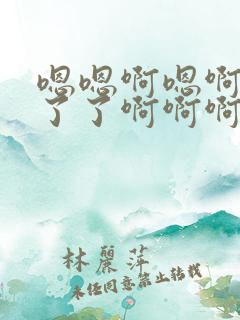 嗯嗯啊嗯啊
了了啊啊啊
林麗萍
未经同意禁止转载